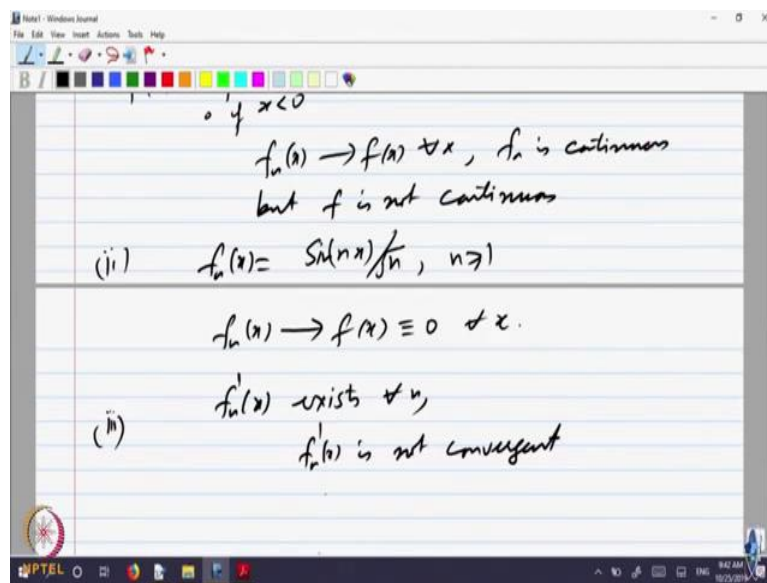 Note1 - Windows Journal
File Edit View Insert Actions Tools Help
B I
0 if x<0
fₙ(x) → f(x) ∀x, fₙ is continuous
but f is not continuous
(ii) fₙ(x) = Sin(nx)/√n, n≥1
fₙ(x) → f(x) ≡ 0 ∀ x.
fₙ'(x) exists ∀ n,
(iii) fₙ'(x) is not convergent
NPTEL
ENG
9:42 AM